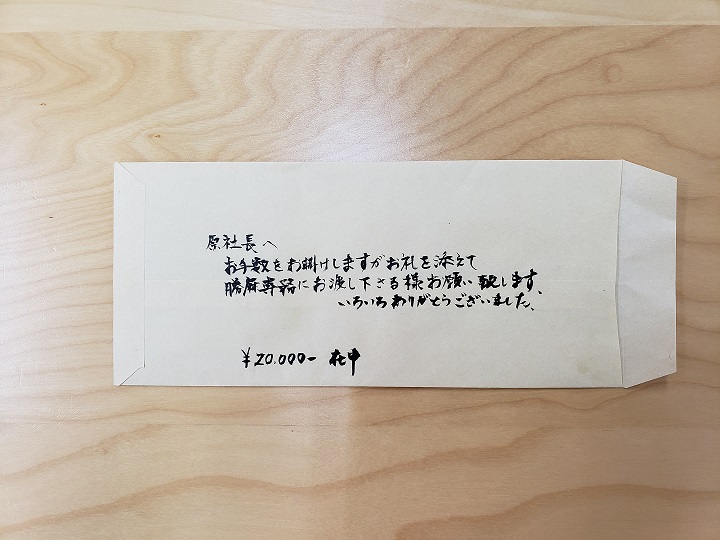 原社長へ
お手数をお掛けしますがお礼を添えて
勝麻専務にお渡し下さる様お願い致します、
いろいろありがとうございました、
¥20.000- 在中